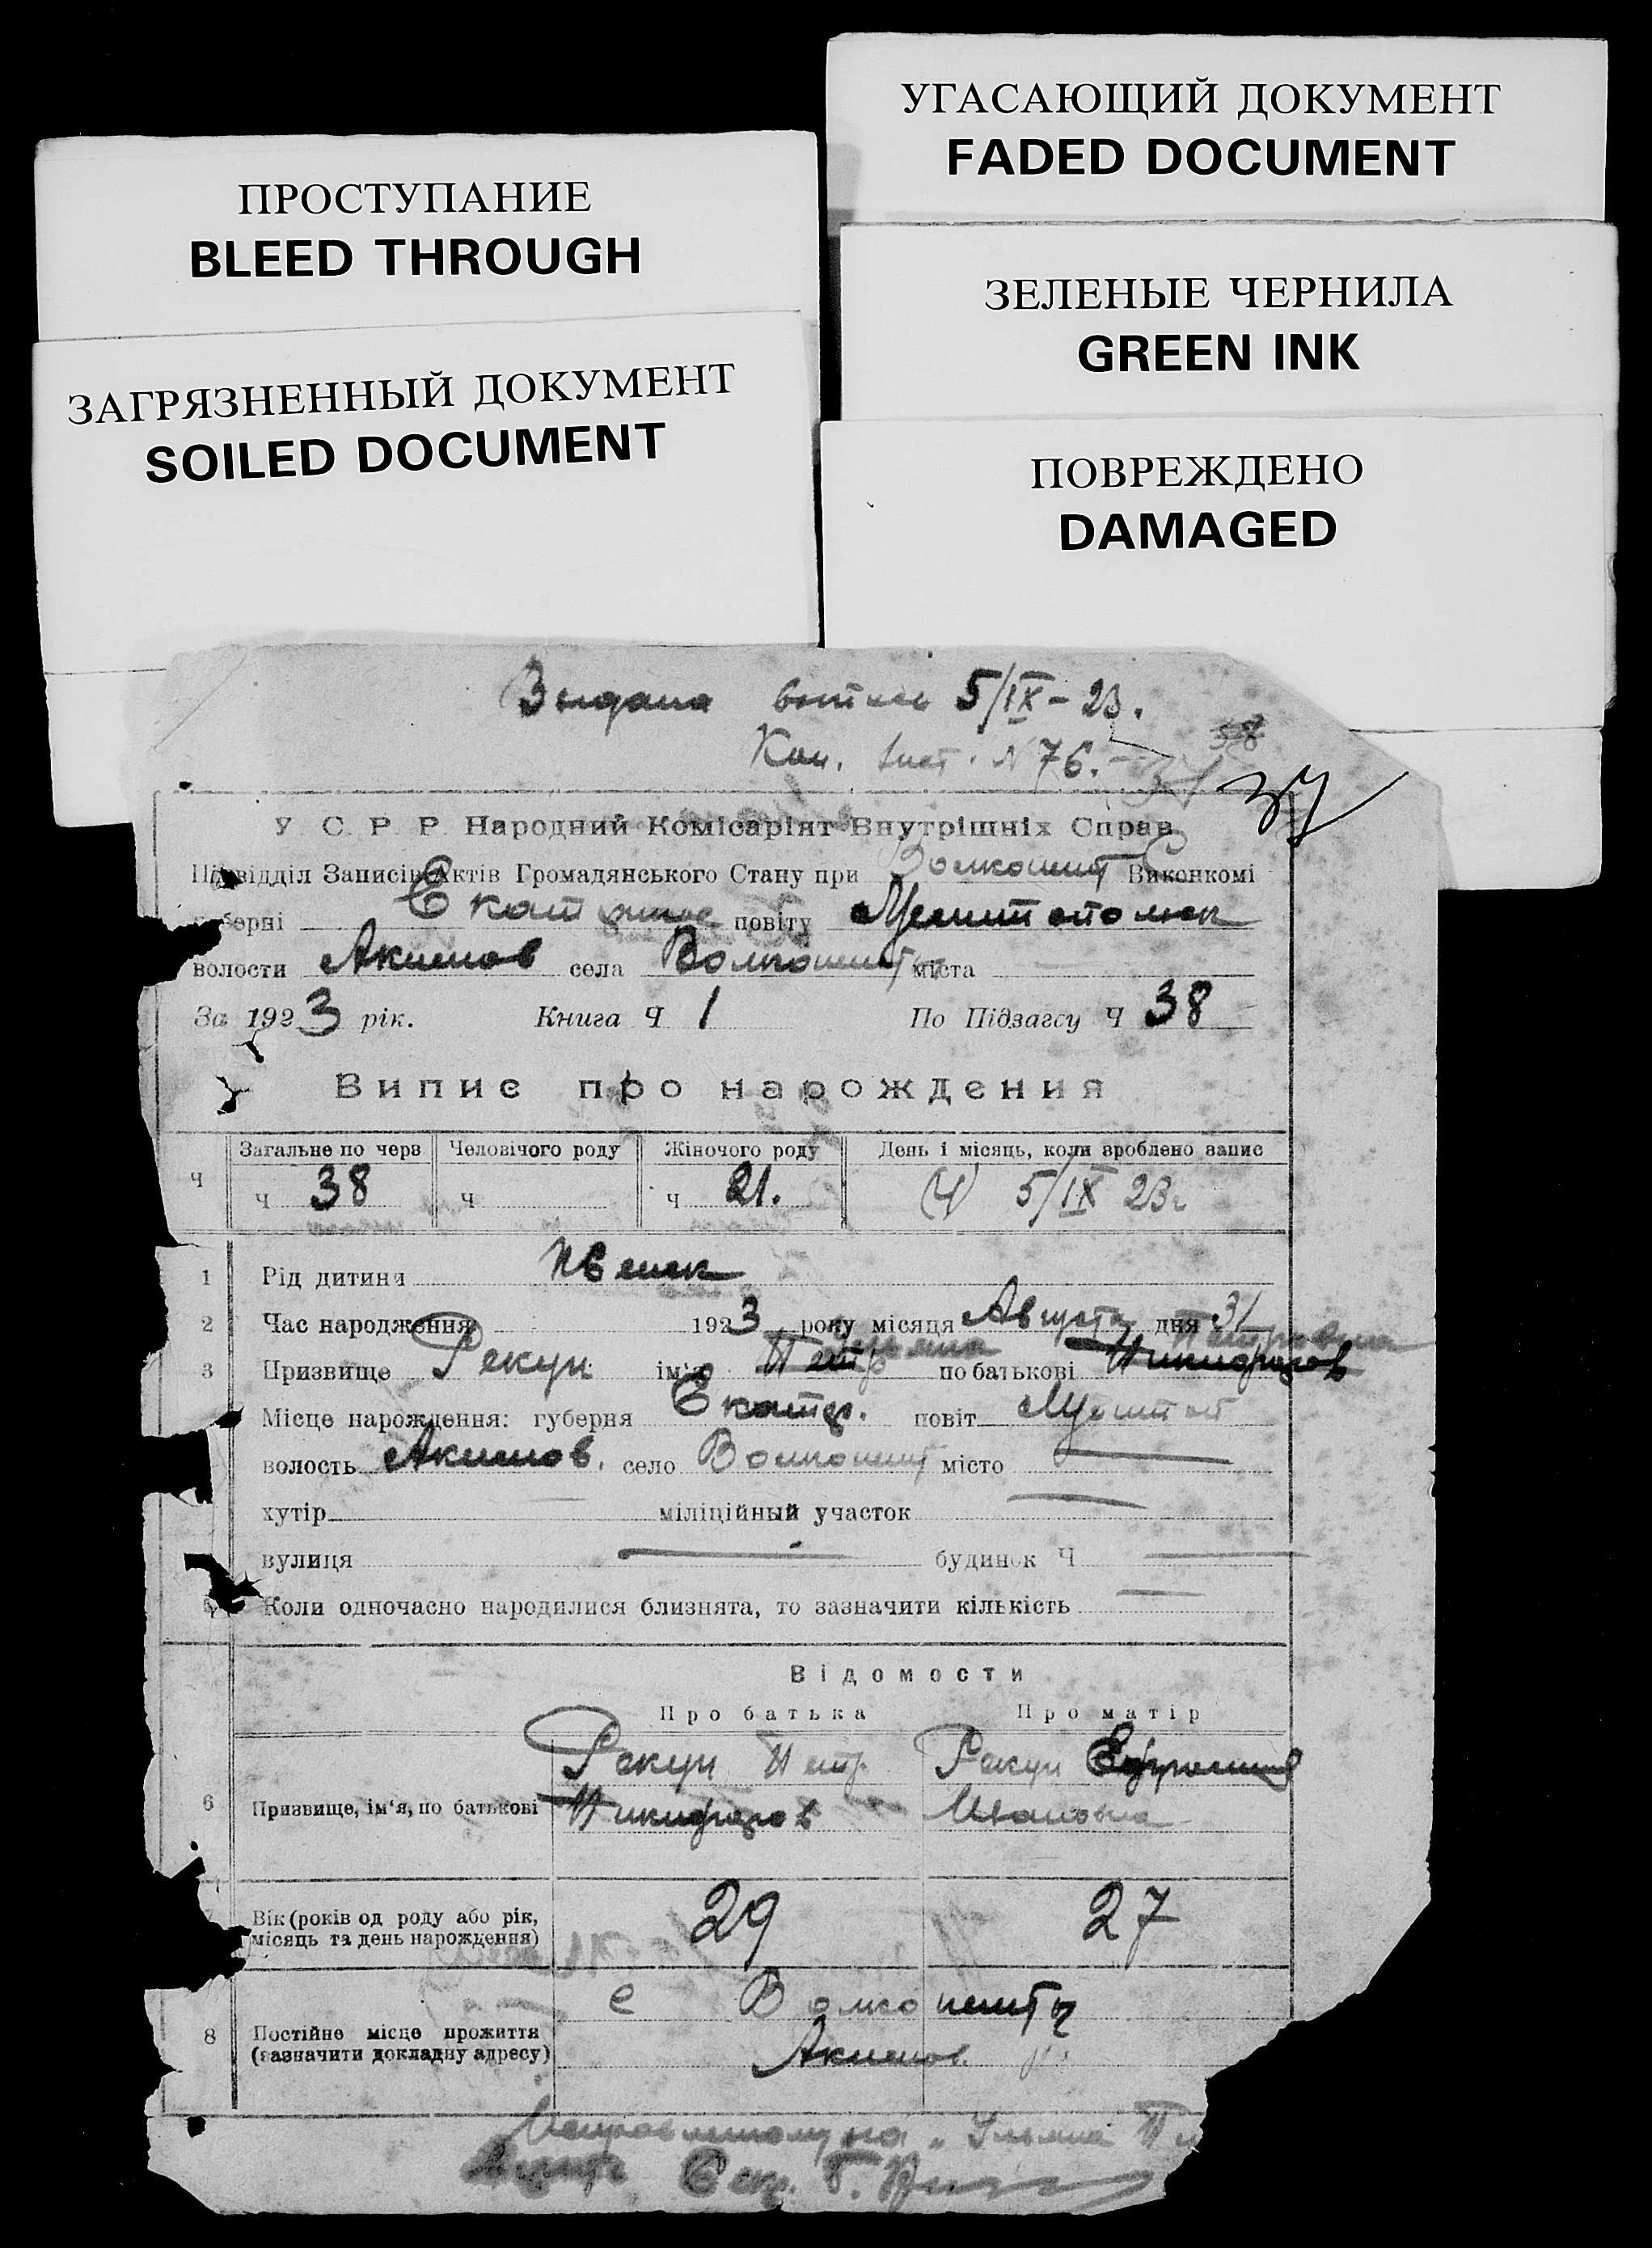 УГАСАЮЩИЙ ДОКУМЕНТ
FADED DOCUMENT
ПРОСТУПАНИЕ
BLEED THROUGH
ЗЕЛЕНЫЕ ЧЕРНИЛА
GREEN INK
ЗАГРЯЗНЕННЫЙ ДОКУМЕНТ
SOILED DOCUMENT
ПОВРЕЖДЕНО
DAMAGED
5/IX-23.
N 76.
38
37
У. С. Р. Р. Народний Комісаріят Внутрішніх Справ
Підвідділ Записів Актів Громадянського Стану при Виконкомі
повіту
волости Акимов села міста
За 1923 рік. Книга Ч 1 По Підзагсу Ч 38
Випис про нарождения
Ч Загальне по черв Человічого роду Жіночого роду День і місяць, коли зроблено запис
Ч 38 Ч Ч 21. 5/IX 23г
1 Рід дитини Женск
2 Час народження 1923 року місяця Августа дня 31
Петровна
3 Призвище Рекун ім'я Петр по батькові Никифоров
Місце нарождення: губерня Екатер. повіт Мелитоп
волость Акимов. село місто
хутір міліційный участок
вулиця будинок Ч
Коли одночасно народилися близнята, то зазначити кількість
Відомости
Про батька Про матір
Рекун Петр Рекун Ефросиния
6 Призвище, ім'я, по батькові Никифоров Ивановна
Вік (років од роду або рік, 29 27
місяць та день нарождення)
с
8 Постійне місце прожиття
(зазначити докладну адресу) Акимов.
"Ульяна
Секр.